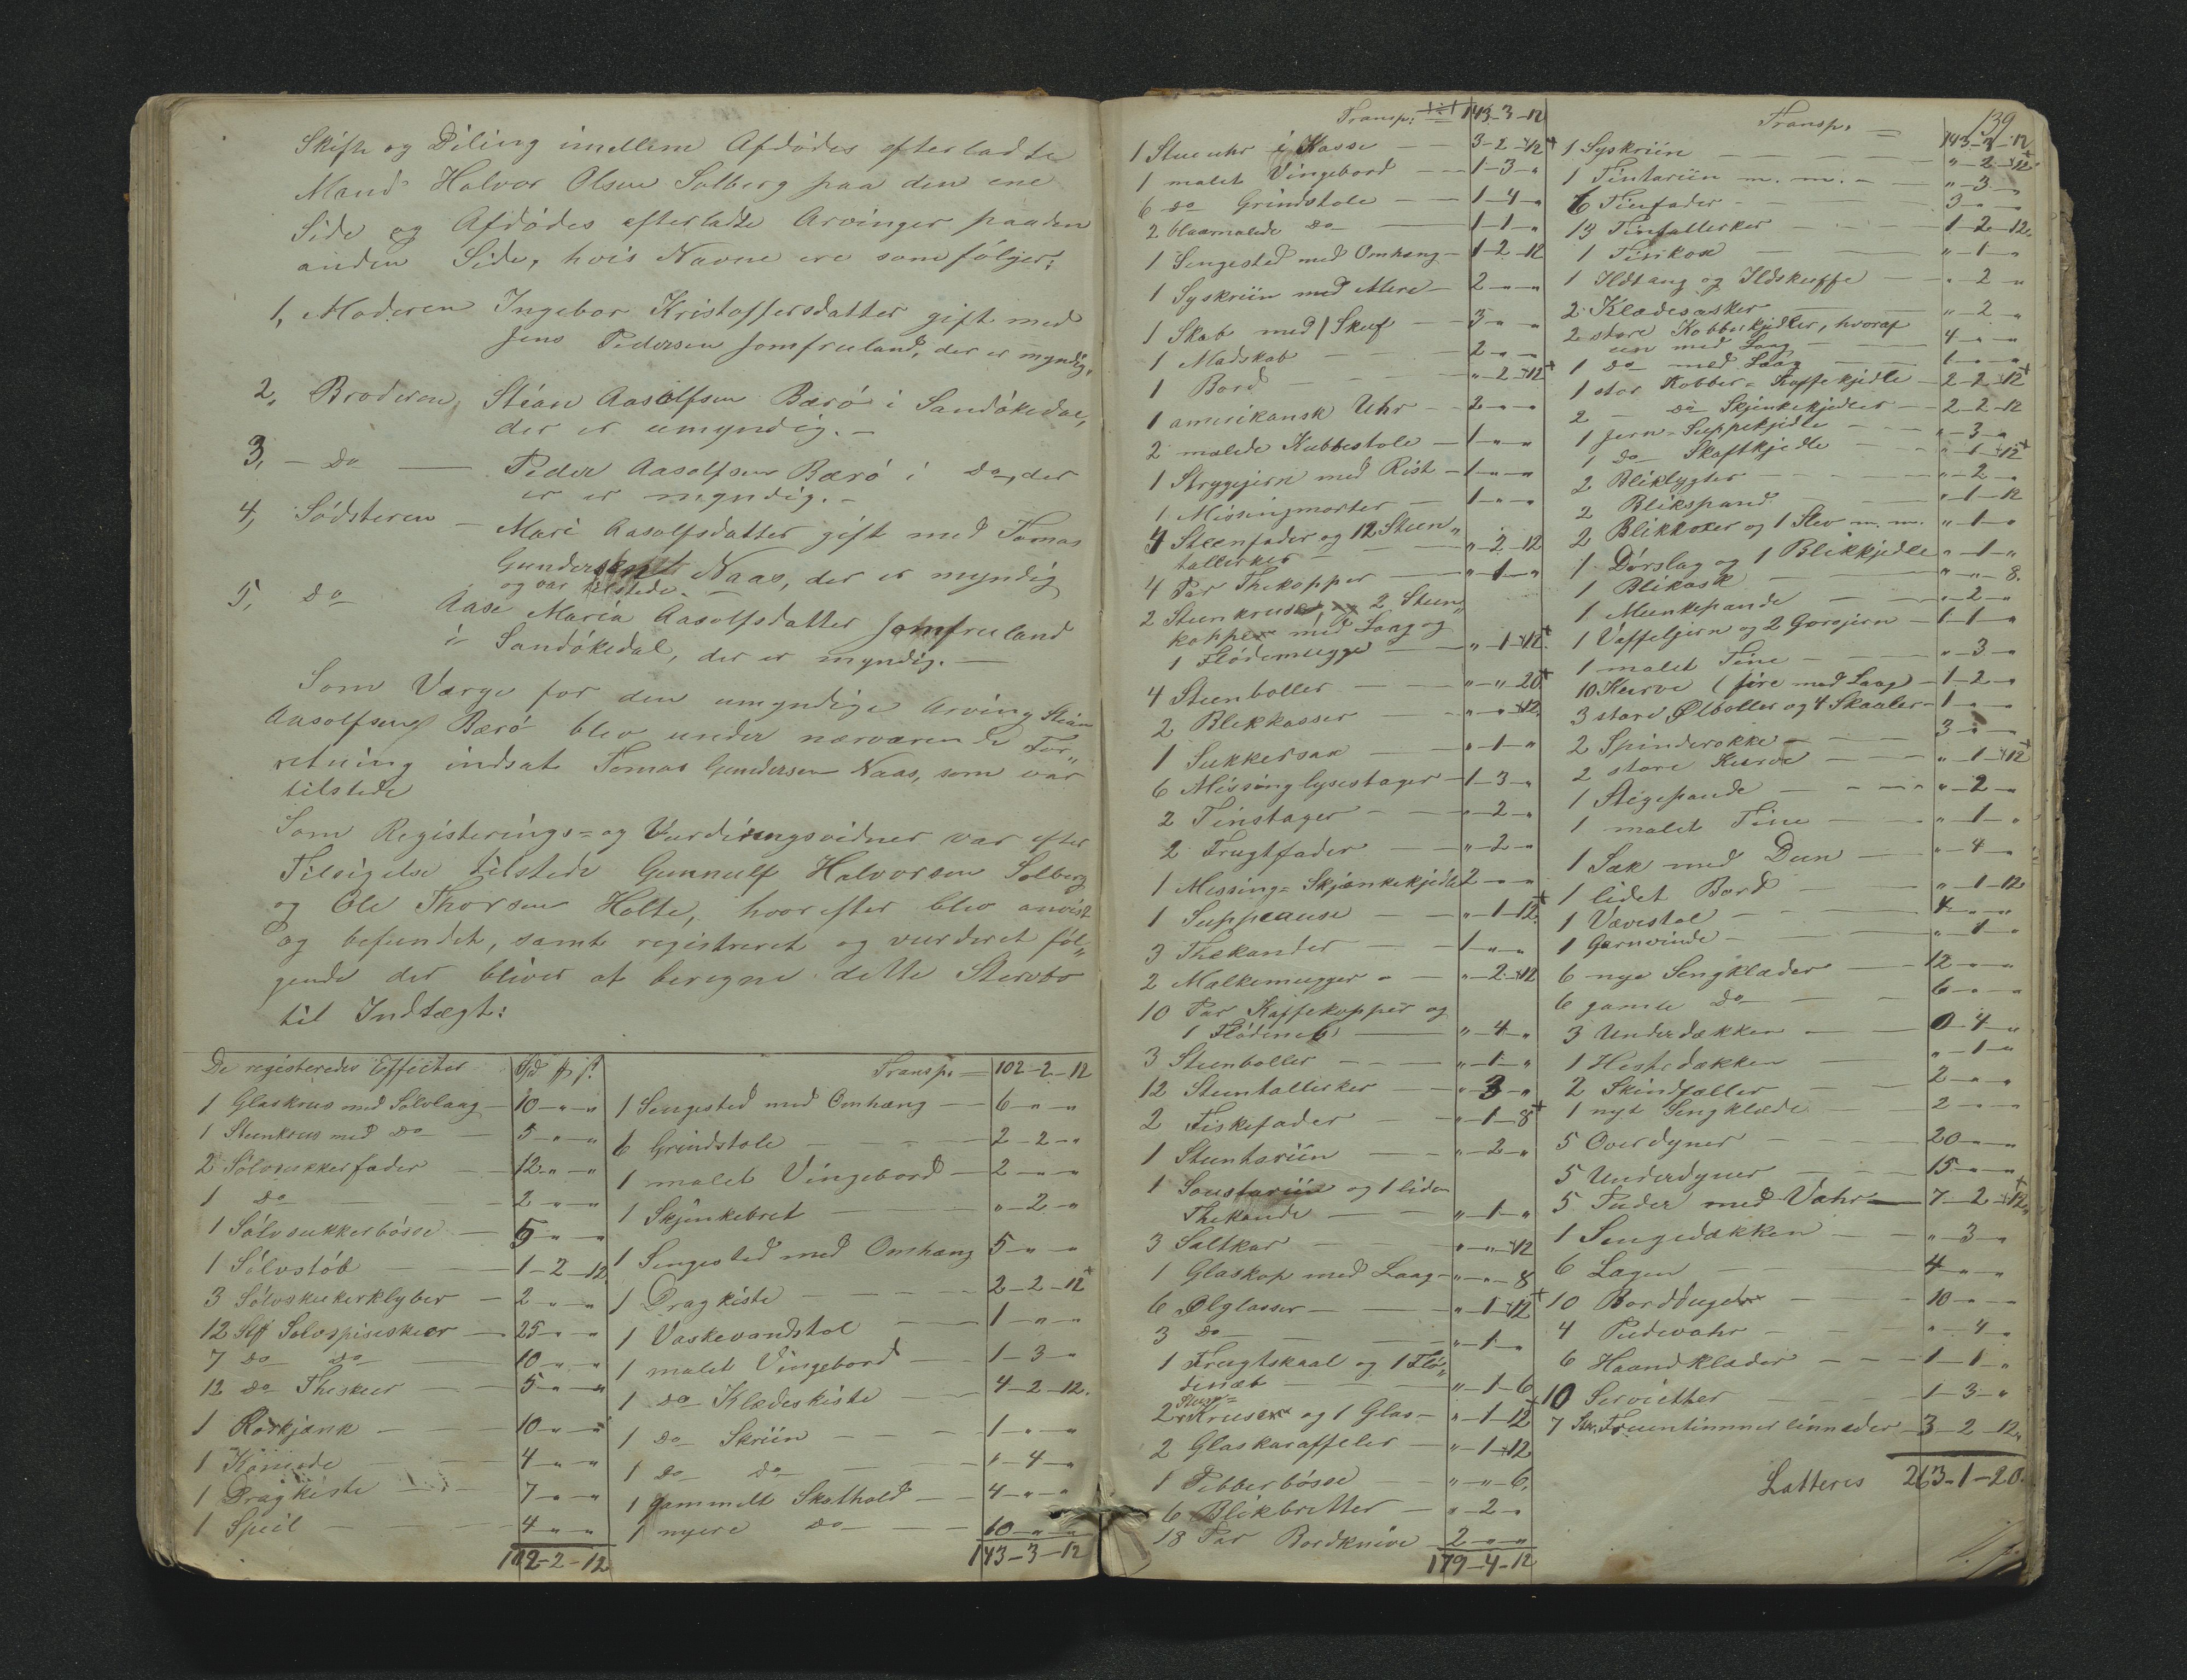 Skifte og Deling imellem Afdödes efterladte
Mand Halvor Olsen Solberg paa den ene
Side og Afdödes efterladte Arvinger paa den
anden Side, hvis Navne ere som fölger:
1, Moderen Ingebor Kristoffersdatter gift med
Jens Pedersen Jomfruland, der er myndig.
2, Broderen, Stian Aasolfsen Barö i Sandökedal,
der er umyndig. -
3, - Do - Peder Aasolfsen Barö i Do, der
er er myndig. -
4, Södsteren - Mari Aasolfsdatter gift med Tomas
Gundersen Naas, der er myndig
og var tilstede. -
5, Do Aase Maria Aasolfsdatter Jomfruland
i Sandökedal, der er myndig. -
Som Værge for den umyndige Arving Stian
Aasolfsen Barö blev under nærværende For„
retning indsat Tomas Gundersen Naas, som var
tilstede
Som Registerings= og Vurderingsvidner var efter
Tilsigelse tilstede Gunnulf Halvorsen Solberg
og Ole Thorsen Holte, hvorefter blev anvist
og befundet, samt registreret og vurderet föl„
gende der bliver at beregne dette Stervbo
til Indtægt:
De registeredes Effecter
1 Glaskrus med Sölvlaag - 10 - „ - „
1 Steenkrus med Do - 5 - „ - „
2 Sölvsukkerfader - 12 - „ - „
1 Do - 2 - „ - „
1 Sölvsukkerbösse - 5 - „ - „
1 Sölvstöb - 1 - 2 - 12
3 Sölvsukkerklyber - 2 - „ - „
12 Stk Sölvspiseskeer - 25 - „ - „
7 Do Do - 10 - „ - „
12 Do Theskeer - 5 - „ - „
1 - 10 - „ - „
1 Komode - 4 - „ - „
1 Dragkiste - 7 - „ - „
1 Speil - 4 - „ - „
102 - 2 - 12
Transp. - 102 - 2 - 12
1 Sengested med Omhæng - 6 - „ - „
6 Grindstole - 2 - 2 - „
1 malet Vingebord - 2 - „ - „
1 Skjænkebret - „ - 2 - „
1 Sengested med Omhæng 5 - „ - „
1 Dragkiste - 2 - 2 - 12
1 Vaskevandstol - 1 - „ - „
1 malet Vingebord - 1 - 3 - „
1 Do Klædeskiste - 4 - 2 - 12.
1 Do Skriin - 1 - „ - „
1 Do Do - „ - 4 - „
1 gammelt Skathold - 4 - „ - „
1 nyere Do - 10 - „ - „
143 - 3 - 12
Transp: 143 - 3 - 12
1 Stueuhr i Kasse - 3 - 2 - 12
1 malet Vingebord - 1 - 3 - „
6 Do Grindstole - 1 - 4 - „
2 blaamalede Do - 1 - 1 - „
1 Sengested med Omhæng - 1 - 2 - 12
1 Syskriin med Mere - 2 - „ - „
1 Skab med 1 Skuf - 3 - „ - „
1 Madskab - 2 - „ - „
1 Bord - „ - 2 - 12
1 amerikansk Uhr - 2 - „ - „
2 malede Kubbestole - 1 - „ - „
1 Strygejern med Rist - 1 - „ - „
1 Missingmorter - 1 - „ - „
4 Steenfader og 12 Steen„
tallerker - „ - 2 - 12
4 Par Thekopper - „ - 1 - „
2 Steenkruse, og 2 Steen„
kopper med Laag og
1 Flödemugge - „ - 1 - 12
4 Steenboller - „ - „ - 20
2 Blekkasser - „ - „ - 12.
1 Sukkersax - „ - 1 - „
6 Missinglysestager - 1 - 3 - „
2 Tinstager - „ - 2 - „
2 Frugtfader - „ - 2 - „
1 Messing= Skjænkekjedel 2 - „ - „
1 Suppeause - „ - 1 - 12.
3 Thekander - 1 - „ - „
2 Malkemugger - „ - 2 - 12
10 Par Kaffekopper og
1 Flödeneb - „ - 4 - „
3 Steenboller - „ - 1 - „
12 Steentallerker - „ - 3 - „
2 Fiskefader - „ - 1 - 8
1 Steenteriin - „ - 2 - „
1 Sousteriin og 1 liden
Thekande - „ - 1 - „
3 Saltkar - „ - „ - 12
1 Glaskop med Laag - „ - „ - 8
6 Ölglasser - „ - 1 - 12
3 Do - „ - 1 - „
1 Frugtskaal og 1 Flö„
denæb - „ - 1 - 6
Steen=
2 Kruse og 1 Glas - „ - 1 - 12
2 Glaskaraffeler - „ - 1 - 12
1 Pebberbösse - „ - „ - 6.
6 Blikbretter - „ - 2 - „
18 Par Bordknive 2 - „ - „
179 - 4 - 12
139
Transp. - 143 - 3 - 12
1 Syskriin - „ - 2 - 12
1 Tintariin m. m. - „ - 3 - „
6 Tinfader - 3 - „ - „
13 Tintallerker - 1 - 2 - 12.
1 - „ - 1 - „
1 Ildtang og Ildskuffe - „ - 2 - „
2 Klædesæsker - „ - 2 - „
2 store Kobberkjedler, hvoraf
een med Laag - 4 - „ - „
1 Do med Laag - 1 - „ - „
1 stor Kobber= Kaffekjedle - 2 - 2 - 12
2 - Do Skjenkekjedler - 2 - 2 - 12
1 Jern-Suppekjedle - „ - 3 - „
1 Do Skaftkjedle - „ - 1 - 12
2 Bliklygter - „ - 2 - „
2 Blikspand - „ - 1 - 12
2 Blikkoxer og 1 Slev m. m. „ - 1 - „
1 Dörslag og 1 Blikkjedle „ - 1 - „
1 Blikask - „ - „ - 8.
1 Munkepande - „ - 2 - „
1 Vaffeljern og 2 Gorojern - 1 - 1 - „
1 malet Tine - „ - 3 - „
10 Kurve (fire med Laag) - 1 - 2 - „
3 store Ölboller og 4 Skaaler - 1 - „ - „
2 Spinderokke - 3 - „ - „
2 store Kurve - „ - 1 - 12
1 Stegepande - „ - 2 - „
1 malet Tine - „ - 1 - „
1 Sæk med Duun - „ - 4 - „
1 lidet Bord - „ - 1 - 12
1 Vævestol - 4 - „ - „
1 Garnvinde - „ - 1 - „
6 nye Sengklæder - 12 - „ - „
6 gamle Do - 6 - „ - „
3 Underdækken - 0 - 4 - „
1 Hestedækken - „ - 1 - „
2 Skindfæller - 2 - „ - „
1 nyt Sengklæde - 2 - „ - „
5 Overdyner - 20 - „ - „
5 Underdyner - 15 - „ - „
5 Puder med Vahr - 7 - 2 - 12„
1 Sengedækken - „ - 3 - „
6 Lagen - 4 - „ - „
10 Bordduge - 10 - „ - „
4 Pudevahr - „ - 4 - „
6 Haandklæder - 1 - 1 - „
10 Servietter - 1 - 3 - „
7 Stk. Fruentimmer linneder - 3 - 2 - 12„
Latteris 263 - 1 - 20.